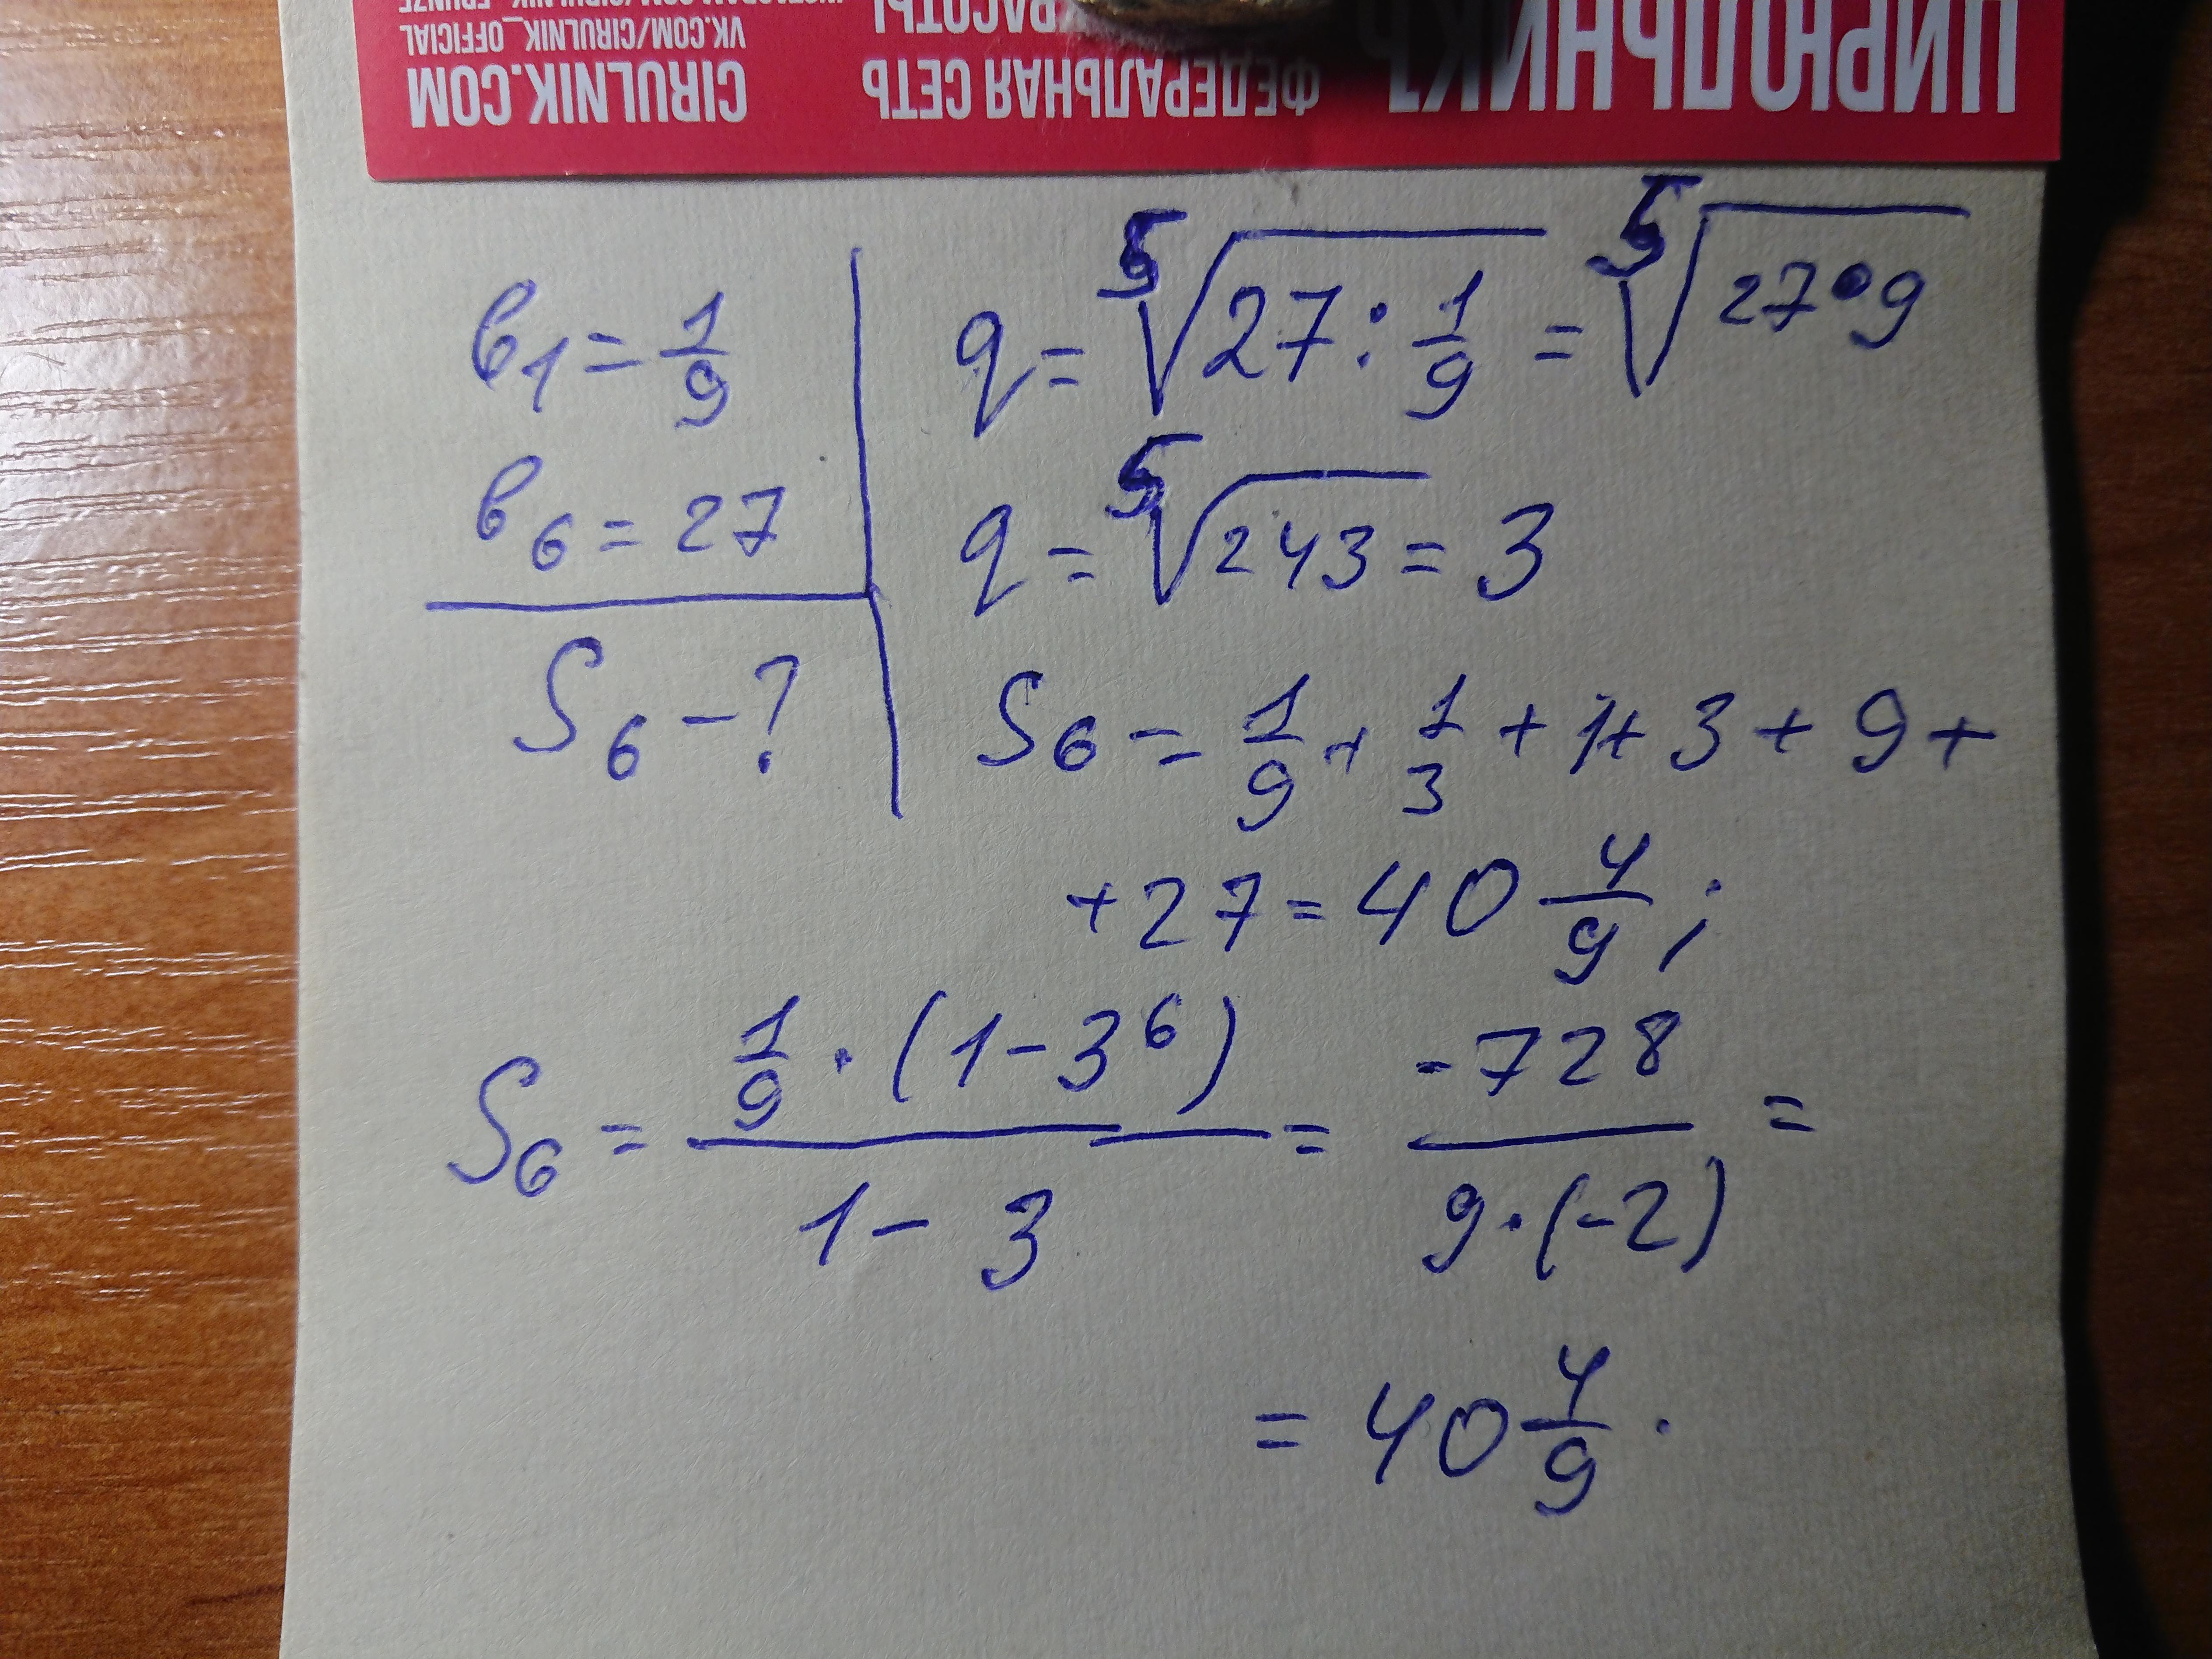 ЦИРЮЛЬНИКЪ
ФЕДЕРАЛЬНАЯ СЕТЬ
CIRULNIK.COM
VK.COM/CIRULNIK_OFFICIAL
b₁ = 1/9
b₆ = 27
S₆ - ?
q = ⁵√(27 : 1/9) = ⁵√(27 • 9)
q = ⁵√243 = 3
S₆ = 1/9 + 1/3 + 1 + 3 + 9 +
+ 27 = 40 4/9 ;
S₆ = (1/9 · (1 - 3⁶))/(1 - 3) = -728/(9 · (-2)) =
= 40 4/9 .